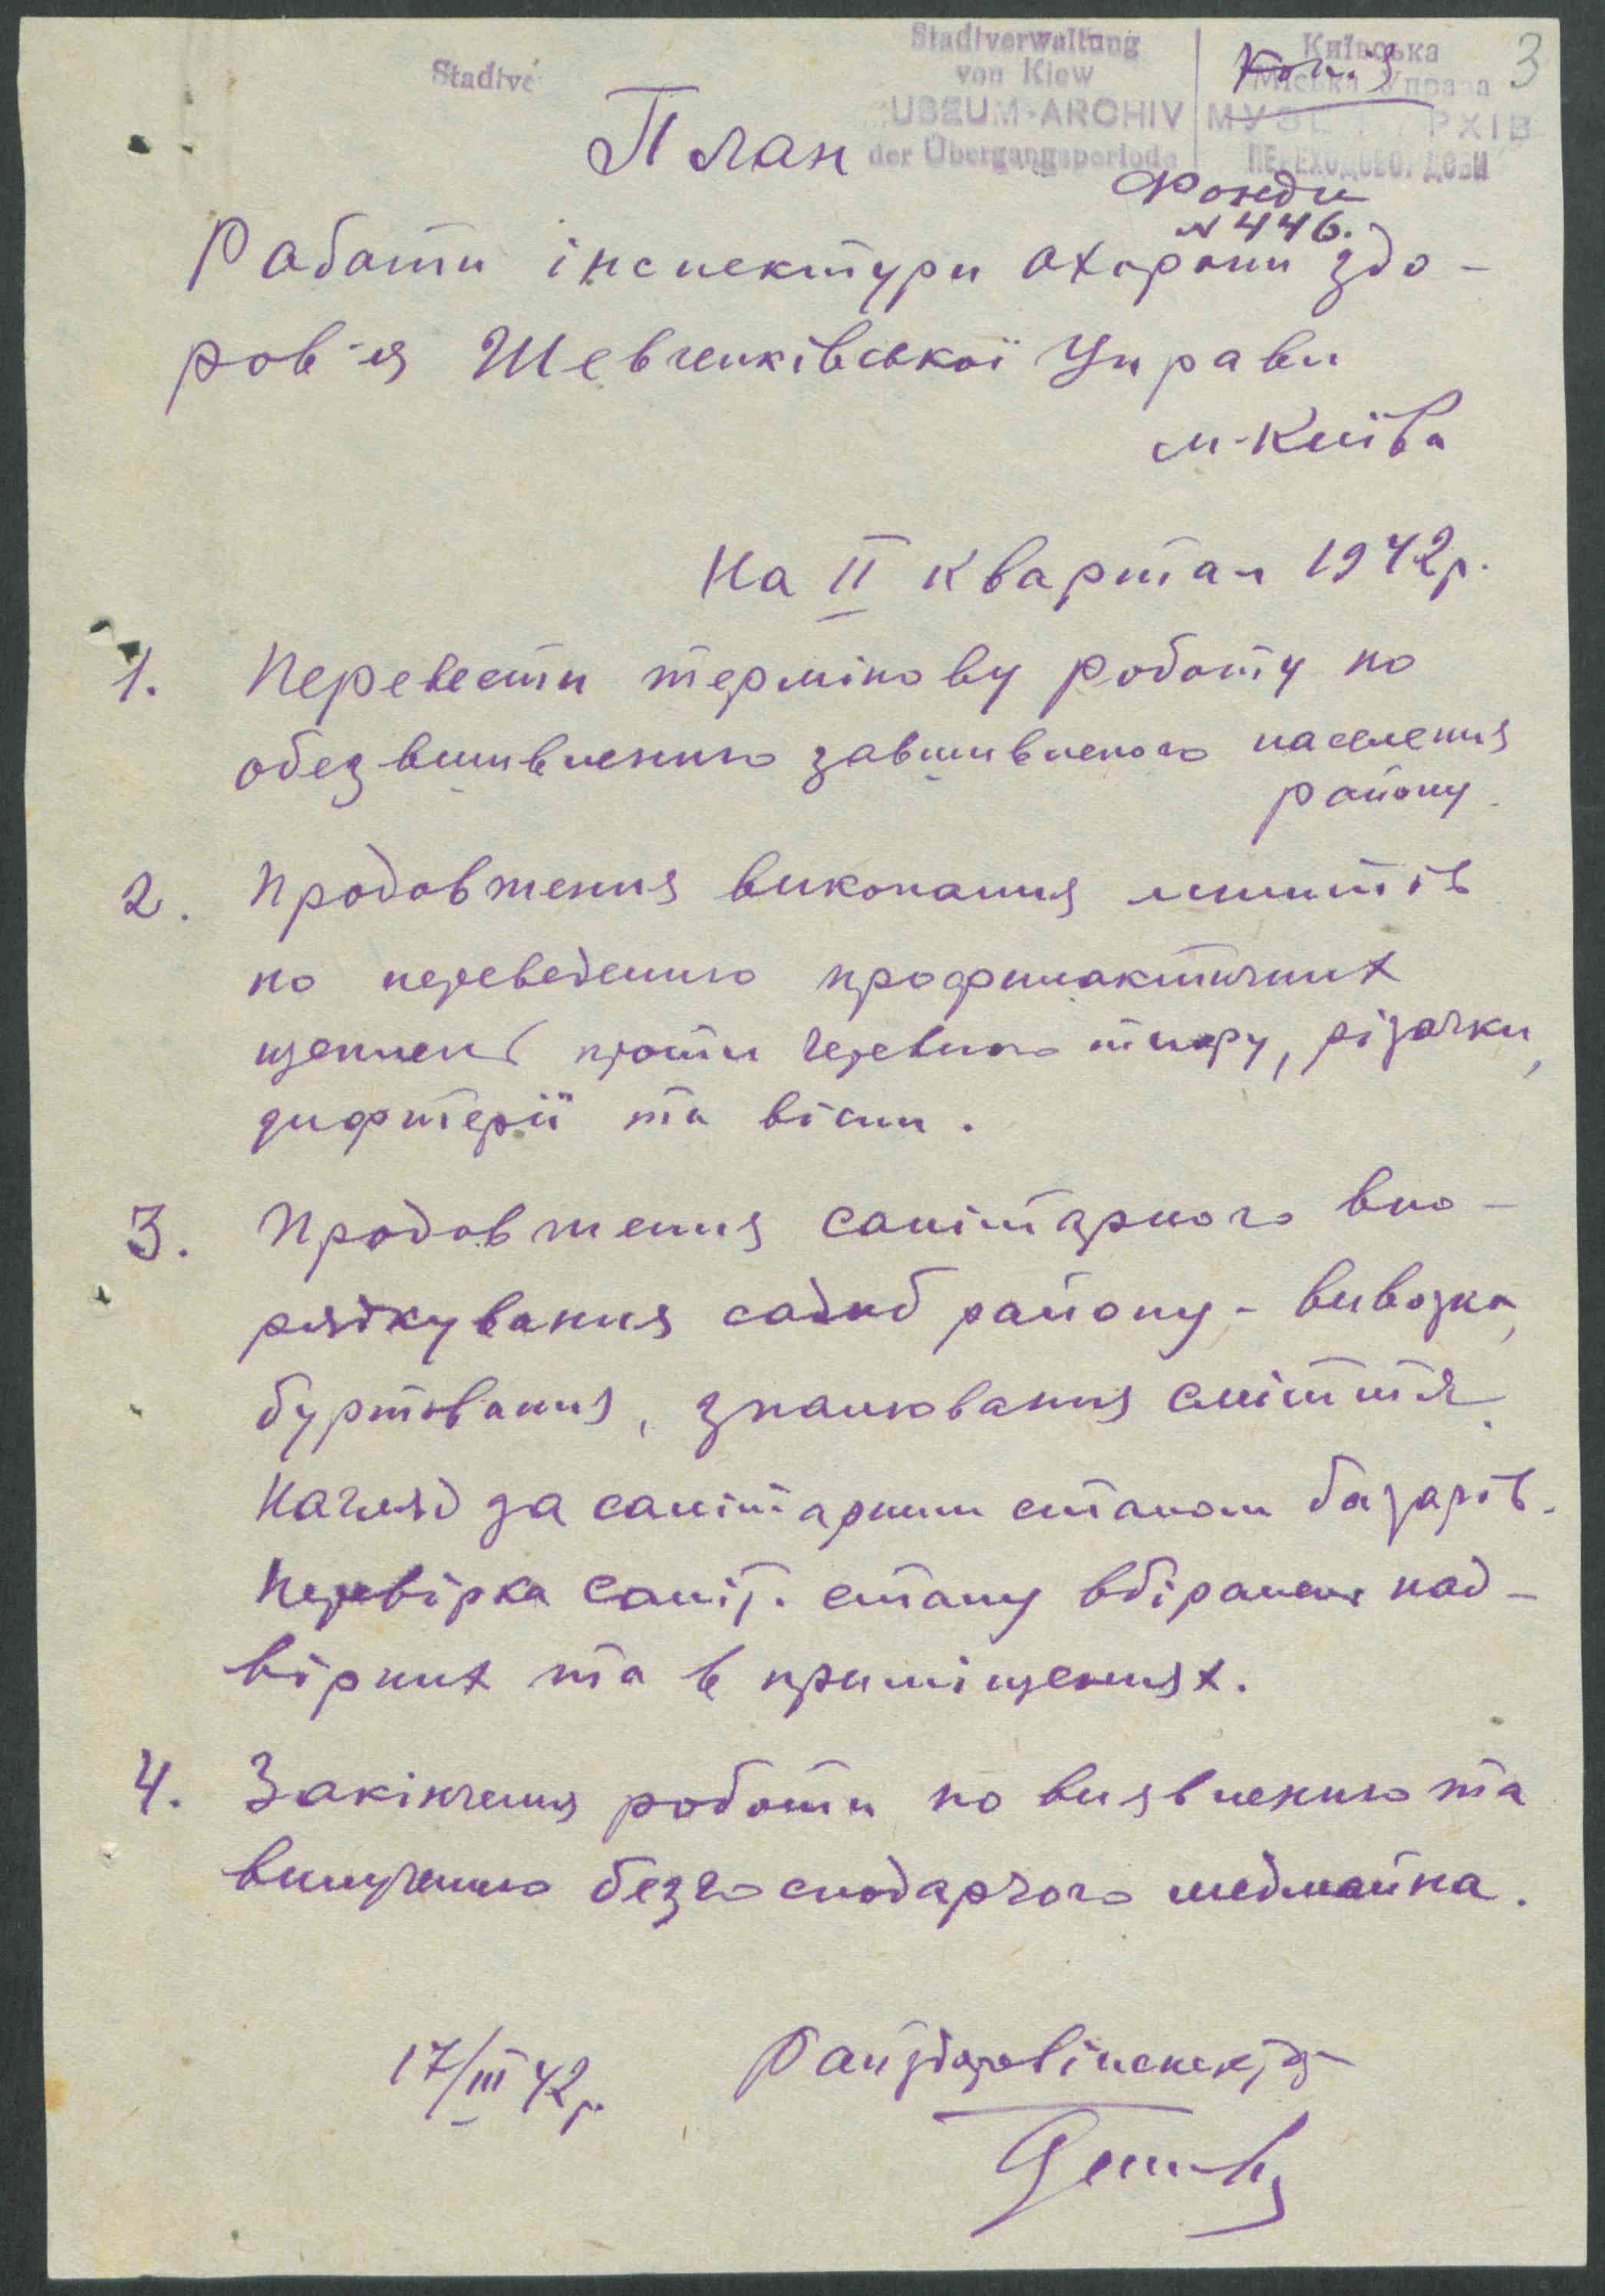 Stadtve
Stadtverwaltung
von Kiew
USEUM-ARCHIV
der Übergangsperiode
Київська
Міська Управа
МУЗЕ РХІВ
ПЕРЕХОДОВО. ДОБИ
3
Фонди
N 446.
План
Работи інспектури охорони здо-
ров'я Шевченківської Управи
м. Київа
На II квартал 1942р.
1. Перевести термінову роботу по
обезвшивленню завшивленого населення
району.
2. Продовження виконання лимитів
по переведенню профилактичних
щеплень проти черевного тифу, різачки,
дифтерії та віспи.
3. Продовження санітарного впо-
рядкування садиб району - вивозка,
буртовання, зпалювання сміття.
Нагляд за санітарним станом базарів.
Перевірка саніт. стану вбіралень над-
вірних та в приміщеннях.
4. Закінчення роботи по виявленню та
вилученню безгосподарчого медмайна.
17/III 42р.
Райздоровінспектор